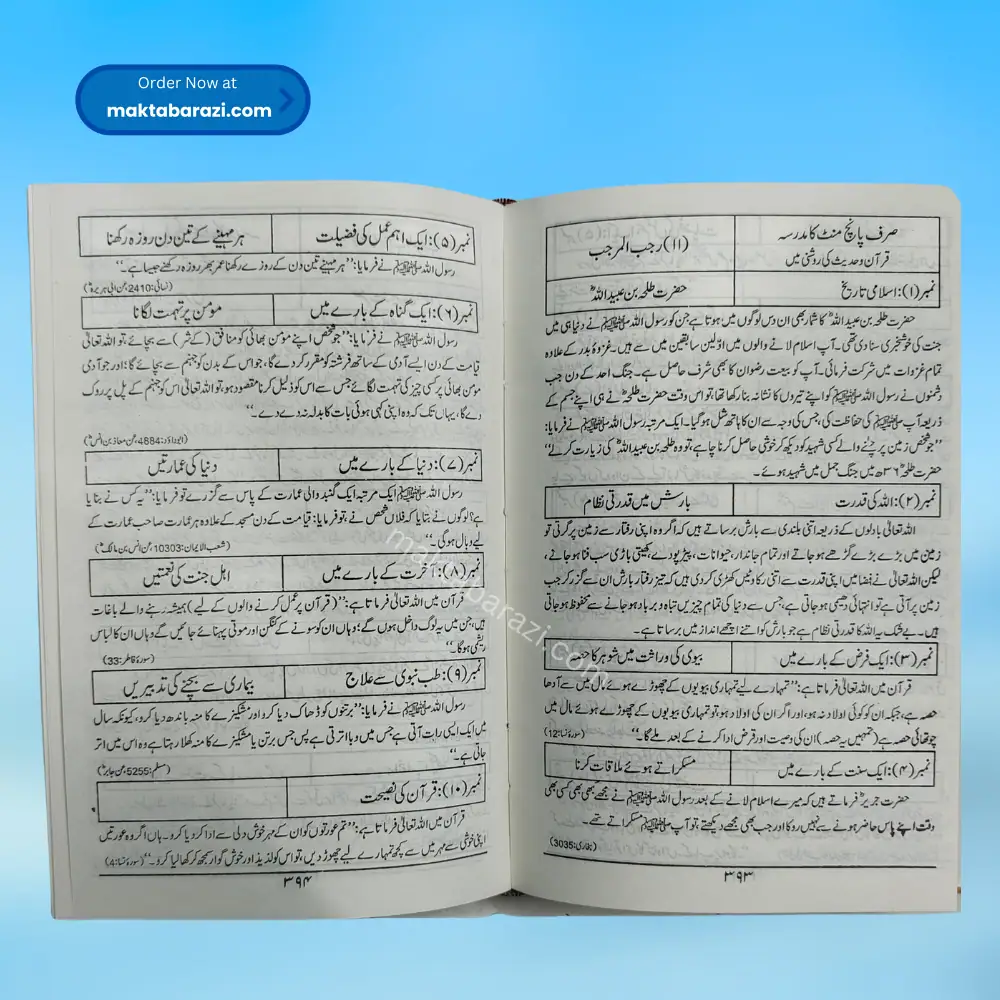 Order Now at
maktabarazi.com
صرف پانچ منٹ کا مدرسہ
قرآن و حدیث کی روشنی میں
(۱۱) رجب المرجب
نمبر (۱): اسلامی تاریخ
حضرت طلحہ بن عبید اللہؓ
حضرت طلحہ بن عبید اللہؓ کا شمار بھی ان دس لوگوں میں ہوتا ہے جن کو رسول اللہ ﷺ نے دنیا ہی میں
جنت کی خوشخبری سنا دی تھی۔ آپ اسلام لانے والوں میں اوّلین سابقین میں سے ہیں۔ غزوۂ بدر کے علاوہ
تمام غزوات میں شرکت فرمائی۔ آپ کو بیعت رضوان کا بھی شرف حاصل ہے۔ جنگ احد کے دن جب
دشمنوں نے رسول اللہ ﷺ کو اپنے تیروں کا نشانہ بنا رکھا تھا، تو اس وقت حضرت طلحہؓ نے ہی اپنے جسم کے
ذریعہ آپ ﷺ کی حفاظت کی، جس کی وجہ سے ان کا ہاتھ شل ہو گیا۔ ایک مرتبہ رسول اللہ ﷺ نے فرمایا:
”جو شخص زمین پر چلنے والے کسی شہید کو دیکھ کر خوشی حاصل کرنا چاہے، تو وہ طلحہ بن عبید اللہؓ کی زیارت کرلے“
حضرت طلحہؓ ۳۶ھ میں جنگ جمل میں شہید ہوئے۔
نمبر (۲): اللہ کی قدرت
بارش میں قدرتی نظام
اللہ تعالیٰ بادلوں کے ذریعہ اتنی بلندی سے بارش برساتے ہیں کہ اگر وہ اپنی رفتار سے زمین پر گرتی تو
زمین میں بڑے بڑے گڑھے ہو جاتے اور تمام جاندار، حیوانات، پیڑ پودے، کھیتی باڑی سب فنا ہو جاتے،
لیکن اللہ تعالیٰ نے فضا میں اپنی قدرت سے اتنی رکاوٹیں کھڑی کر دی ہیں کہ تیز رفتار بارش ان سے گزر کر جب
زمین پر آتی ہے تو انتہائی دھیمی ہو جاتی ہے، جس سے دنیا کی تمام چیزیں تباہ و برباد ہو جانے سے محفوظ ہو جاتی
ہیں۔ بے شک یہ اللہ کا قدرتی نظام ہے جو بارش کو اتنے اچھے انداز میں برساتا ہے۔
نمبر (۳): ایک فرض کے بارے میں
بیوی کی وراثت میں شوہر کا حصہ
قرآن میں اللہ تعالیٰ فرماتا ہے: ”تمہارے لیے تمہاری بیویوں کے چھوڑے ہوئے مال میں سے آدھا
حصہ ہے، جبکہ ان کو کوئی اولاد نہ ہو، اور اگر ان کی اولاد ہو، تو تمہاری بیویوں کے چھوڑے ہوئے مال میں
چوتھائی حصہ ہے (تمہیں یہ حصہ) ان کی وصیت اور قرض ادا کرنے کے بعد ملے گا۔“ (سورۂ نساء:12)
نمبر (۴): ایک سنت کے بارے میں
مسکراتے ہوئے ملاقات کرنا
حضرت جریرؓ فرماتے ہیں کہ میرے اسلام لانے کے بعد رسول اللہ ﷺ نے مجھے بھی بھی کسی بھی
وقت اپنے پاس حاضر ہونے سے نہیں روکا اور جب بھی مجھے دیکھتے، تو آپ ﷺ مسکراتے تھے۔
(بخاری:3035)
۳۹۳
نمبر (۵): ایک اہم عمل کی فضیلت
ہر مہینے کے تین دن روزہ رکھنا
رسول اللہ ﷺ نے فرمایا: ”ہر مہینے تین دن کے روزے رکھنا عمر بھر روزہ رکھنے جیسا ہے۔“
(نسائی:2410، عن ابی ہریرہؓ)
نمبر (۶): ایک گناہ کے بارے میں
مؤمن پر تہمت لگانا
رسول اللہ ﷺ نے فرمایا: ”جو شخص اپنے مومن بھائی کو منافق (کے شر) سے بچائے، تو اللہ تعالیٰ
قیامت کے دن ایسے آدمی کے ساتھ فرشتہ کو مقرر کر دے گا، جو اس کے بدن کو جہنم سے بچائے گا؛ اور جو آدمی
مؤمن بھائی پر کسی چیز کی تہمت لگائے جس سے اس کو ذلیل کرنا مقصود ہو، تو اللہ تعالیٰ اس کو جہنم کے پل پر روک
دے گا، یہاں تک کہ وہ اپنی کہی ہوئی بات کا بدلہ نہ دے دے۔“
(ابوداؤد:4884، عن معاذ بن انسؓ)
نمبر (۷): دنیا کے بارے میں
دنیا کی عمارتیں
رسول اللہ ﷺ ایک مرتبہ ایک گنبد والی عمارت کے پاس سے گزرے تو فرمایا: ”یہ کس نے بنایا
ہے؟ لوگوں نے بتایا کہ فلاں شخص نے، تو فرمایا: قیامت کے دن مسجد کے علاوہ ہر عمارت صاحب عمارت کے
لیے وبال ہوگی۔“ (شعب الایمان:10303، عن انس بن مالکؓ)
نمبر (۸): آخرت کے بارے میں
اہل جنت کی نعمتیں
قرآن میں اللہ تعالیٰ فرماتا ہے: ”(قرآن پر عمل کرنے والوں کے لیے) ہمیشہ رہنے والے باغات
ہیں، جن میں یہ لوگ داخل ہوں گے؛ وہاں ان کو سونے کے کنگن اور موتی پہنائے جائیں گے وہاں ان کا لباس
ریشمی ہوگا۔“ (سورۂ فاطر:33)
نمبر (۹): طب نبوی سے علاج
بیماری سے بچنے کی تدبیریں
رسول اللہ ﷺ نے فرمایا: ”برتنوں کو ڈھاک دیا کرو اور مشکیزے کا منہ باندھ دیا کرو، کیونکہ سال
میں ایک ایسی رات آتی ہے جس میں وبا اترتی ہے پس جس برتن یا مشکیزے کا منہ کھلا رہتا ہے وہ اس میں اتر
جاتی ہے۔“ (مسلم:5255، عن جابرؓ)
نمبر (۱۰): قرآن کی نصیحت
قرآن میں اللہ تعالیٰ فرماتا ہے: ”تم عورتوں کو ان کے مہر خوش دلی سے ادا کر دیا کرو۔ ہاں اگر وہ عورتیں
اپنی خوشی سے مہر میں سے کچھ تمہارے لیے چھوڑ دیں، تو اس کو لذیذ اور خوش گوار سمجھ کر کھا لیا کرو۔“ (سورۂ نساء:4)
۳۹۴
maktabarazi.com